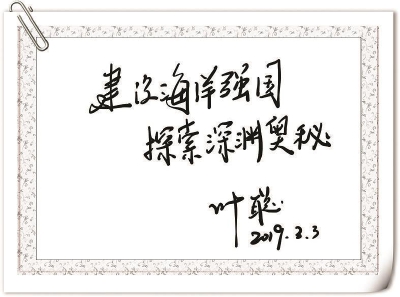 建设海洋强国
探索深渊奥秘
叶聪
2019.3.3